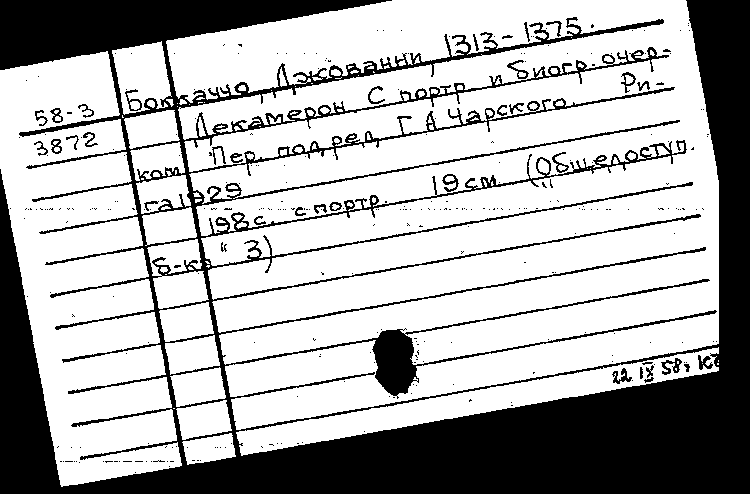 58-3 Боккаччо, Джованни, 1313-1375.
3872 Декамерон. С портр. и биогр. очер-
ком. Пер. под ред. Г. А. Чарского. Ри-
га 1929
198 с. с портр. 19 см. („Общедоступ.
б-ка“ 3)
22 IX 58г.